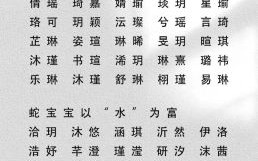 倩瑶 琦嘉 婧瑜 琰玥 星瑜
珞可 玥颖 沄璨 兮瑶 言琦
芷琳 姿瑄 琳晞 旻玥 暄琪
沐瑾 书瑄 浠玥 琳熹 璐祎
乐琳 沐瑾 舒琳 栩瑾 易琳
蛇宝宝以“水”为富
洽玥 沐悠 涵琪 沂然 伊洛
浩妤 芊澄 瑾滢 研汐 沫茜